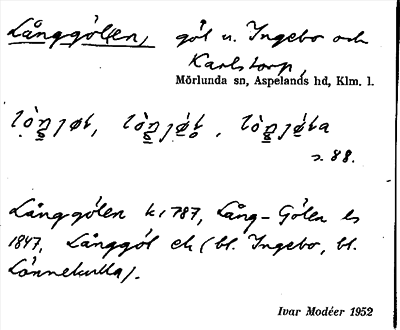 Långgöl(en), göl u. Ingebo och
Karlstorp,
Mörlunda sn, Aspelands hd, Klm. l.
s. 88.
Långgölen k 1787, Lång-Gölen ls
1847, Långgöl ek (bl. Ingebo, bl.
Lönnekulla).
Ivar Modéer 1952